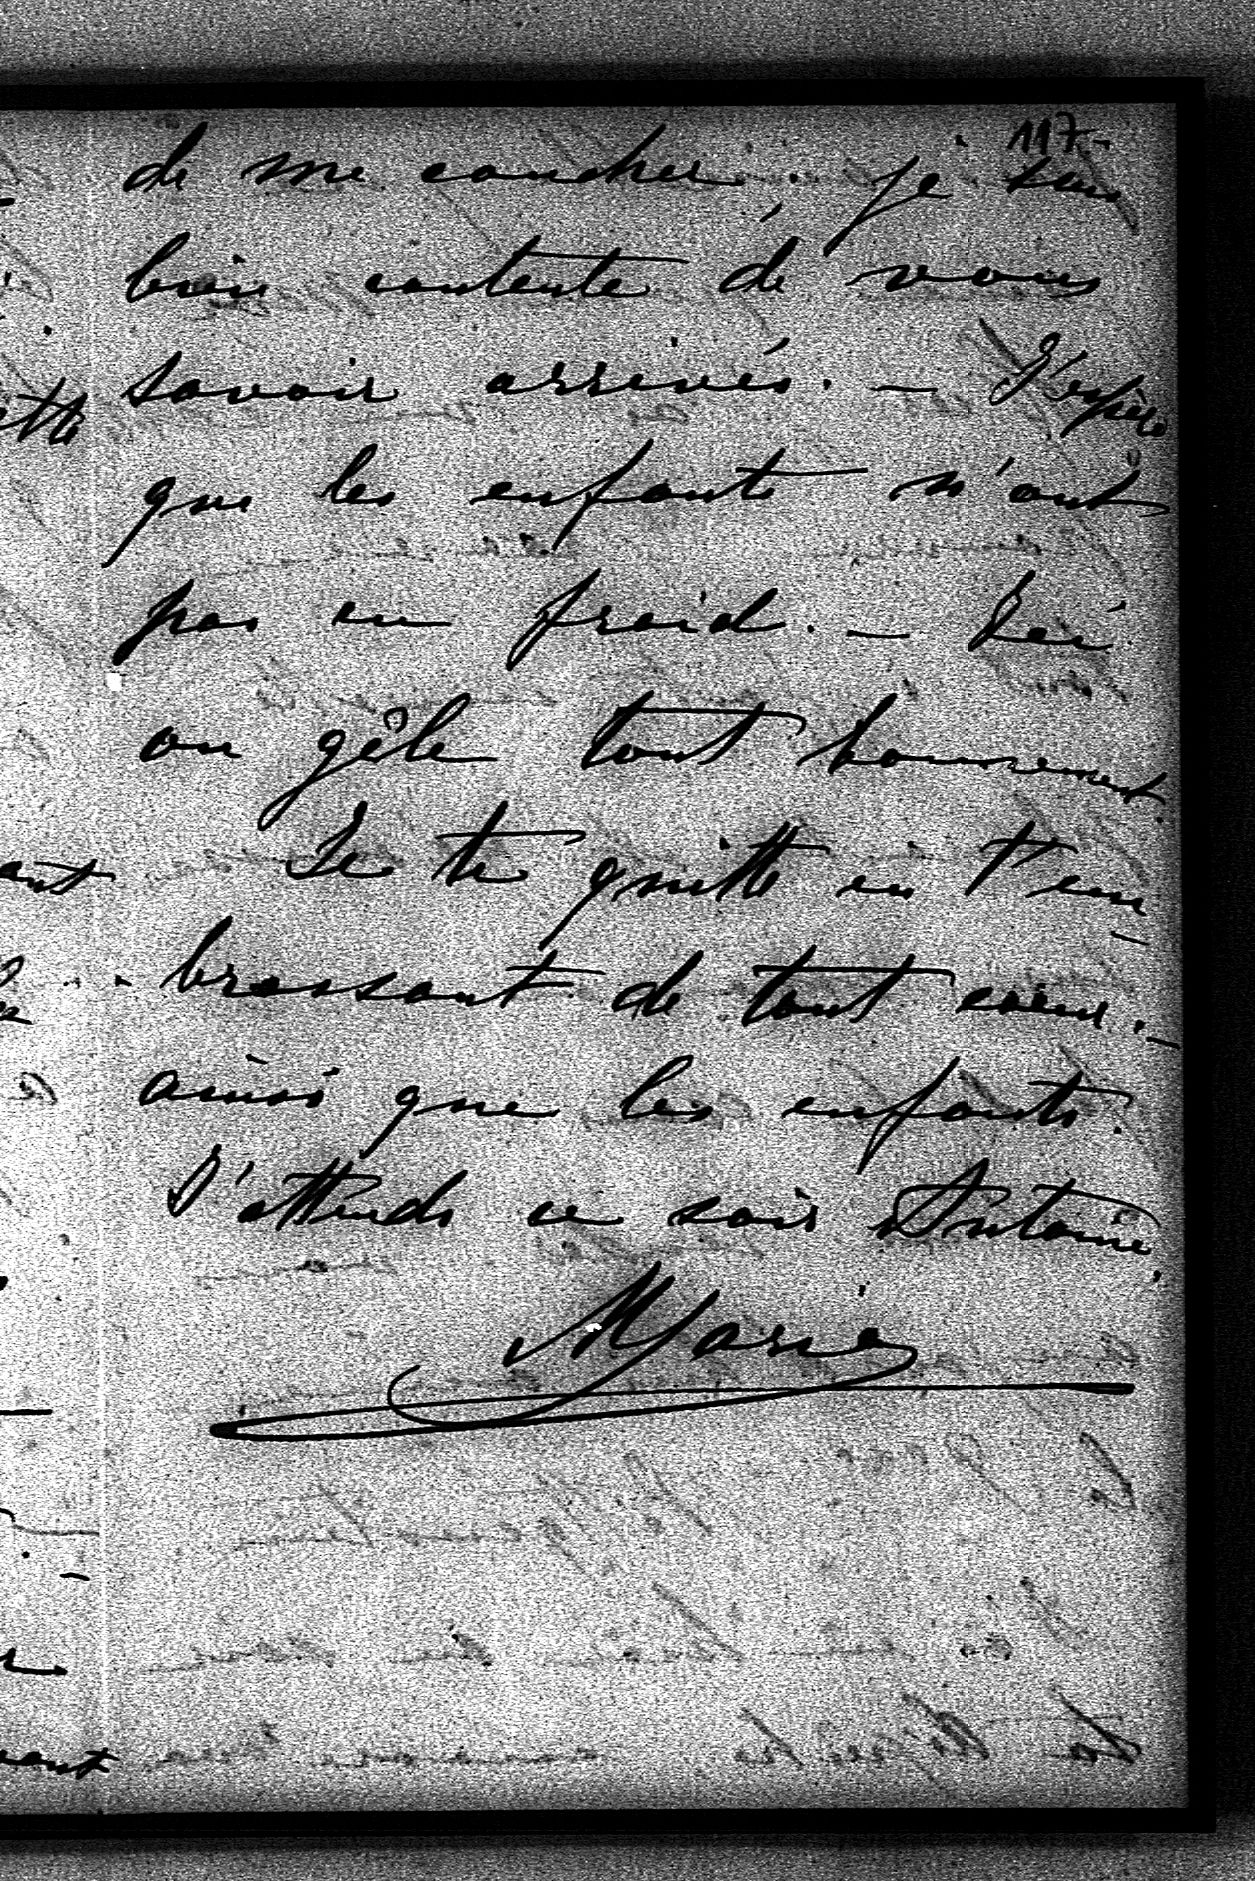 117 -
de me coucher. je suis
bien contente de vous
savoir arrivés. — J'espère
que les enfants n'ont
pas eu froid. — Ici
on gèle tout bonnement.
Je te quitte en t'em
brassant de tout coeur. —
ainsi que les enfants.
J'attends ce soir Antoine.
Marie